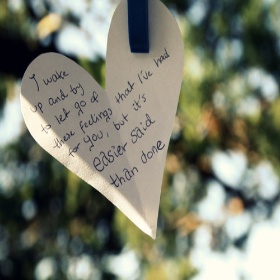 I wake
up and try
to let go of
these feelings that I've had
for you, but it's
easier said
than done